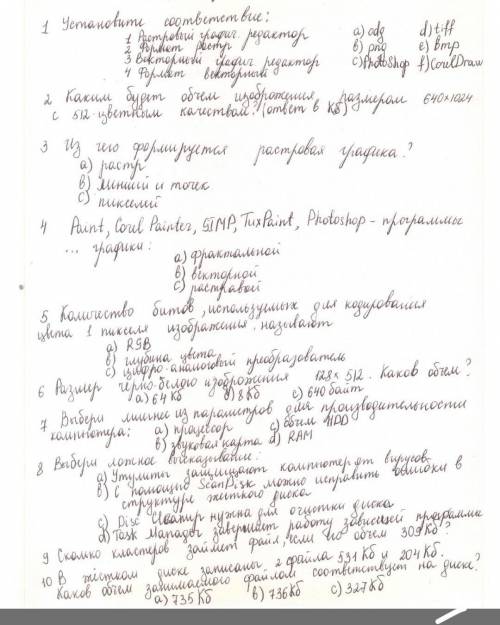 1 Установите соответствие:
1 Растровый график. редактор a) odg d) tiff
2 Формат растр b) png e) bmp
3 Векторный график. редактор c) PhotoShop f) CorelDraw
4 Формат векторный
2 Каким будет объем изображения размером 640×1024
с 512-цветным качеством? (ответ в Кб)
3 Из чего формируется растровая графика?
a) растр
b) линий и точек
c) пикселей
4 Paint, Corel Painter, GIMP, TuxPaint, Photoshop - программы
... графики:
a) фрактальной
b) векторной
c) растравой
5 Количество битов, используемых для кодирования
цвета 1 пикселя изображения, называют
a) RGB
b) глубина цвета
c) цифро-аналоговый преобразователь
6 Размер черно-белого изображения 128×512. Каков объем?
a) 64 Кб b) 8 Кб c) 640 байт
7 Выбери лишнее из параметров для производительности
компьютера: a) процессор c) объем HDD
b) звуковая карта d) RAM
8 Выбери ложное высказывание:
a) Утилиты защищают компьютер от вирусов
b) С помощью ScanDisk можно исправить ошибки в
структуре жесткого диска
c) Disc Cleanup нужна для очистки диска
d) Task Manager завершает работу зависшей программы
9 Сколько кластеров займет файл, если его объем 309 Кб?
10 В жёстком диске записаны 2 файла 531 Кб и 204 Кб.
Каков объем занимаемого файлом соответствует на диске?
a) 735 Кб b) 736 Кб c) 327 Кб